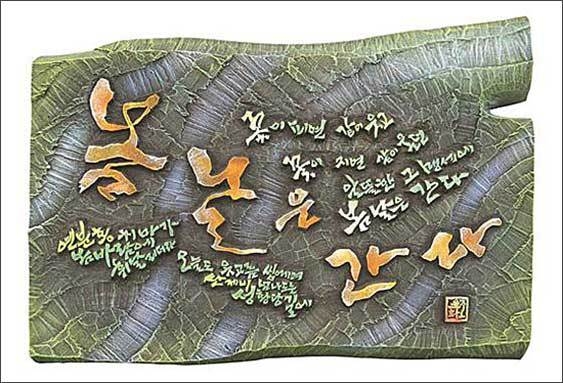 봄
날
은
간다
연분홍 치마가
봄바람에
휘날리더라
오늘도 옷고름
산제비 넘나드는
성황당 길에
꽃이 피면 같이 웃고
꽃이 지면 같이 울던
알뜰한 그 맹세에
봄날은 간다